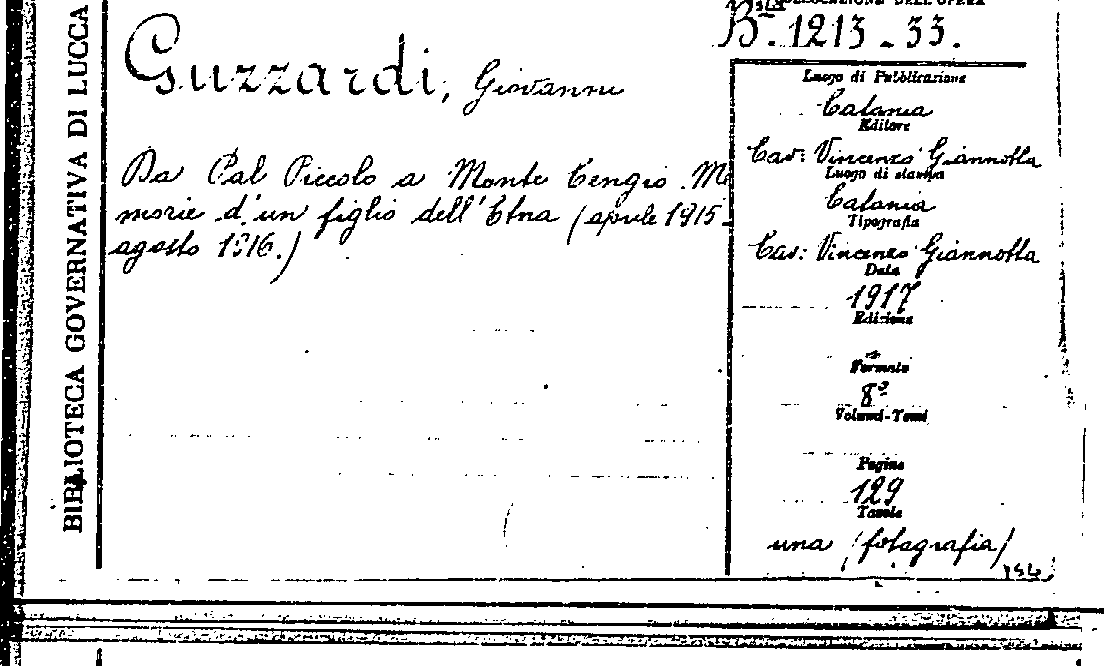 BIBLIOTECA GOVERNATIVA DI LUCCA
COLLOCAZIONE DELL'OPERA
B.ta 1213-33.
Guzzardi, Giovanni
Da Pal Piccolo a Monte Cengio. Me
morie d'un figlio dell'Etna (aprile 1915-
agosto 1916.)
Luogo di Pubblicazione
Catania
Editore
Cav: Vincenzo Giannotta
Luogo di stampa
Catania
Tipografia
Cav: Vincenzo Giannotta
Data
1917
Edizione
Formato
8º
Volumi-Tomi
Pagine
129
Tavole
una (fotografia)